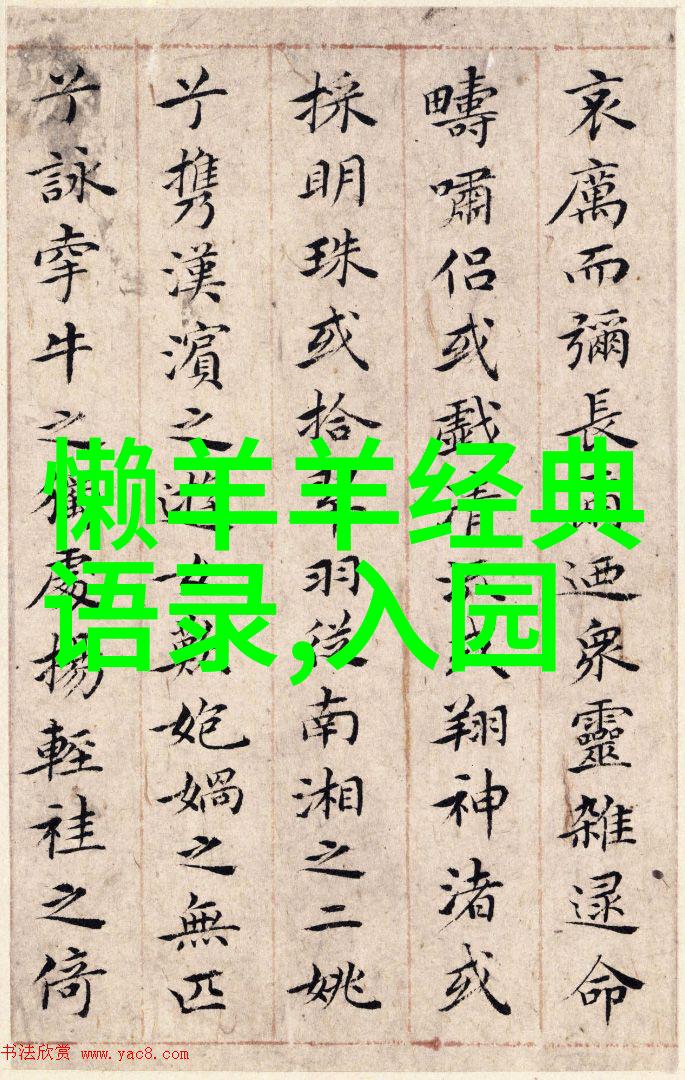 哀厲而彌長爾迺衆靈雜遝命
疇嘯侶或戲清流或翔神渚或
採明珠或拾翠羽從南湘之二姚
兮攜漢濱之遊女歎媧之無匹
兮詠牽牛之獨處揚輕袿之倚
懒羊羊经典
语录,入园
书法欣赏 www.yac8.com